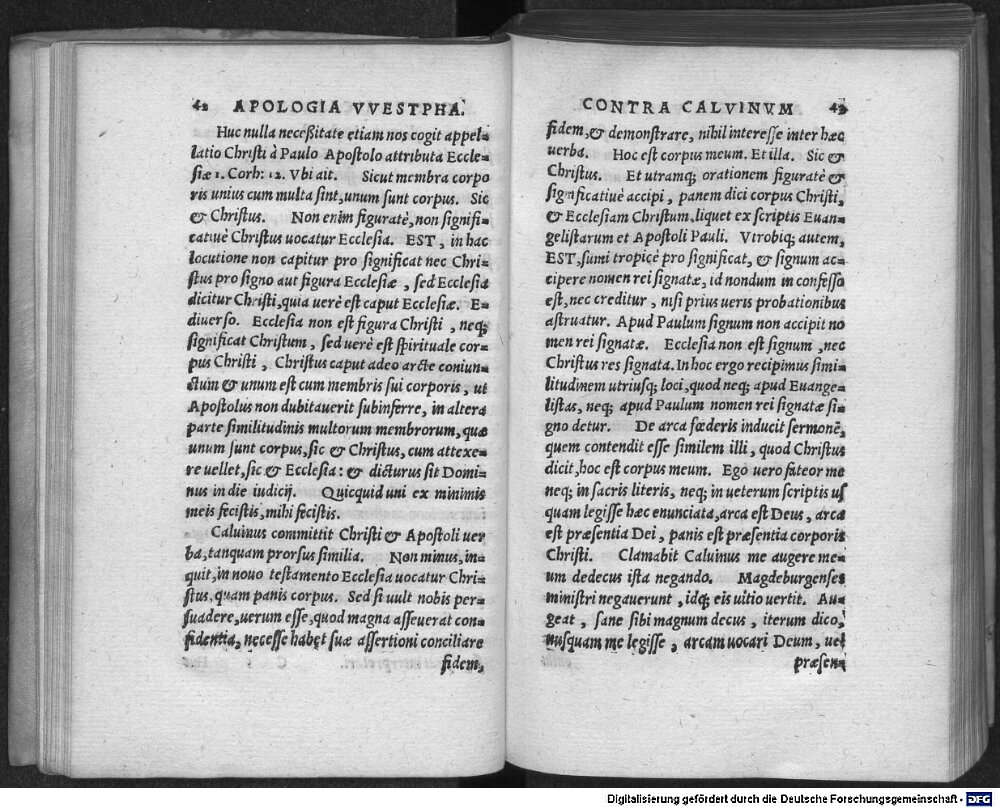 42 APOLOGIA VVESTPHA.
Huc nulla neceßitate etiam nos cogit appel-
latio Christi à Paulo Apostolo attributa Eccle-
siæ 1. Corh: 12. Vbi ait. Sicut membra corpo
ris unius cum multa sint, unum sunt corpus. Sic
& Christus. Non enim figuratè, non signifi-
catiuè Christus uocatur Ecclesia. EST, in hac
locutione non capitur pro significat nec Chri-
stus pro signo aut figura Ecclesiæ, sed Ecclesia
dicitur Christi, quia uerè est caput Ecclesiæ. E-
diuerso. Ecclesia non est figura Christi, neq;
significat Christum, sed uerè est spirituale cor-
pus Christi, Christus caput adeo arcte coniun-
ctum & unum est cum membris sui corporis, ut
Apostolus non dubitauerit subinferre, in altera
parte similitudinis multorum membrorum, quæ
unum sunt corpus, sic & Christus, cum attexe-
re uellet, sic & Ecclesia: & dicturus sit Domi-
nus in die iudicij. Quicquid uni ex minimis
meis fecistis, mihi fecistis.
Caluinus committit Christi & Apostoli uer
ba, tanquam prorsus similia. Non minus, in-
quit, in nouo testamento Ecclesia uocatur Chri-
stus, quam panis corpus. Sed si uult nobis per-
suadere, uerum esse, quod magna asseuerat con-
fidentia, necesse habet suæ assertioni conciliare
fidem,
CONTRA CALVINVM 43
fidem, & demonstrare, nihil interesse inter hæc
uerba. Hoc est corpus meum. Et illa. Sic &
Christus. Et utramq; orationem figuratè &
significatiuè accipi, panem dici corpus Christi,
& Ecclesiam Christum, liquet ex scriptis Euan-
gelistarum et Apostoli Pauli. Vtrobiq; autem,
EST, sumi tropicè pro significat, & signum ac-
cipere nomen rei signatæ, id nondum in confesso
est, nec creditur, nisi prius ueris probationibus
astruatur. Apud Paulum signum non accipit no
men rei signatæ. Ecclesia non est signum, nec
Christus res signata. In hoc ergo recipimus simi-
litudinem utriusq; loci, quod neq; apud Euange-
listas, neq; apud Paulum nomen rei signatæ si-
gno detur. De arca fœderis inducit sermonē,
quem contendit esse similem illi, quod Christus
dicit, hoc est corpus meum. Ego uero fateor me
neq; in sacris literis, neq; in ueterum scriptis us
quam legisse hæc enunciata, arca est Deus, arca
est præsentia Dei, panis est præsentia corporis
Christi. Clamabit Caluinus me augere me-
um dedecus ista negando. Magdeburgenses
ministri negauerunt, idq; eis uitio uertit. Au-
geat, sane sibi magnum decus, iterum dico,
nusquam me legisse, arcam uocari Deum, uel
præsen-
Digitalisierung gefördert durch die Deutsche Forschungsgemeinschaft - DFG